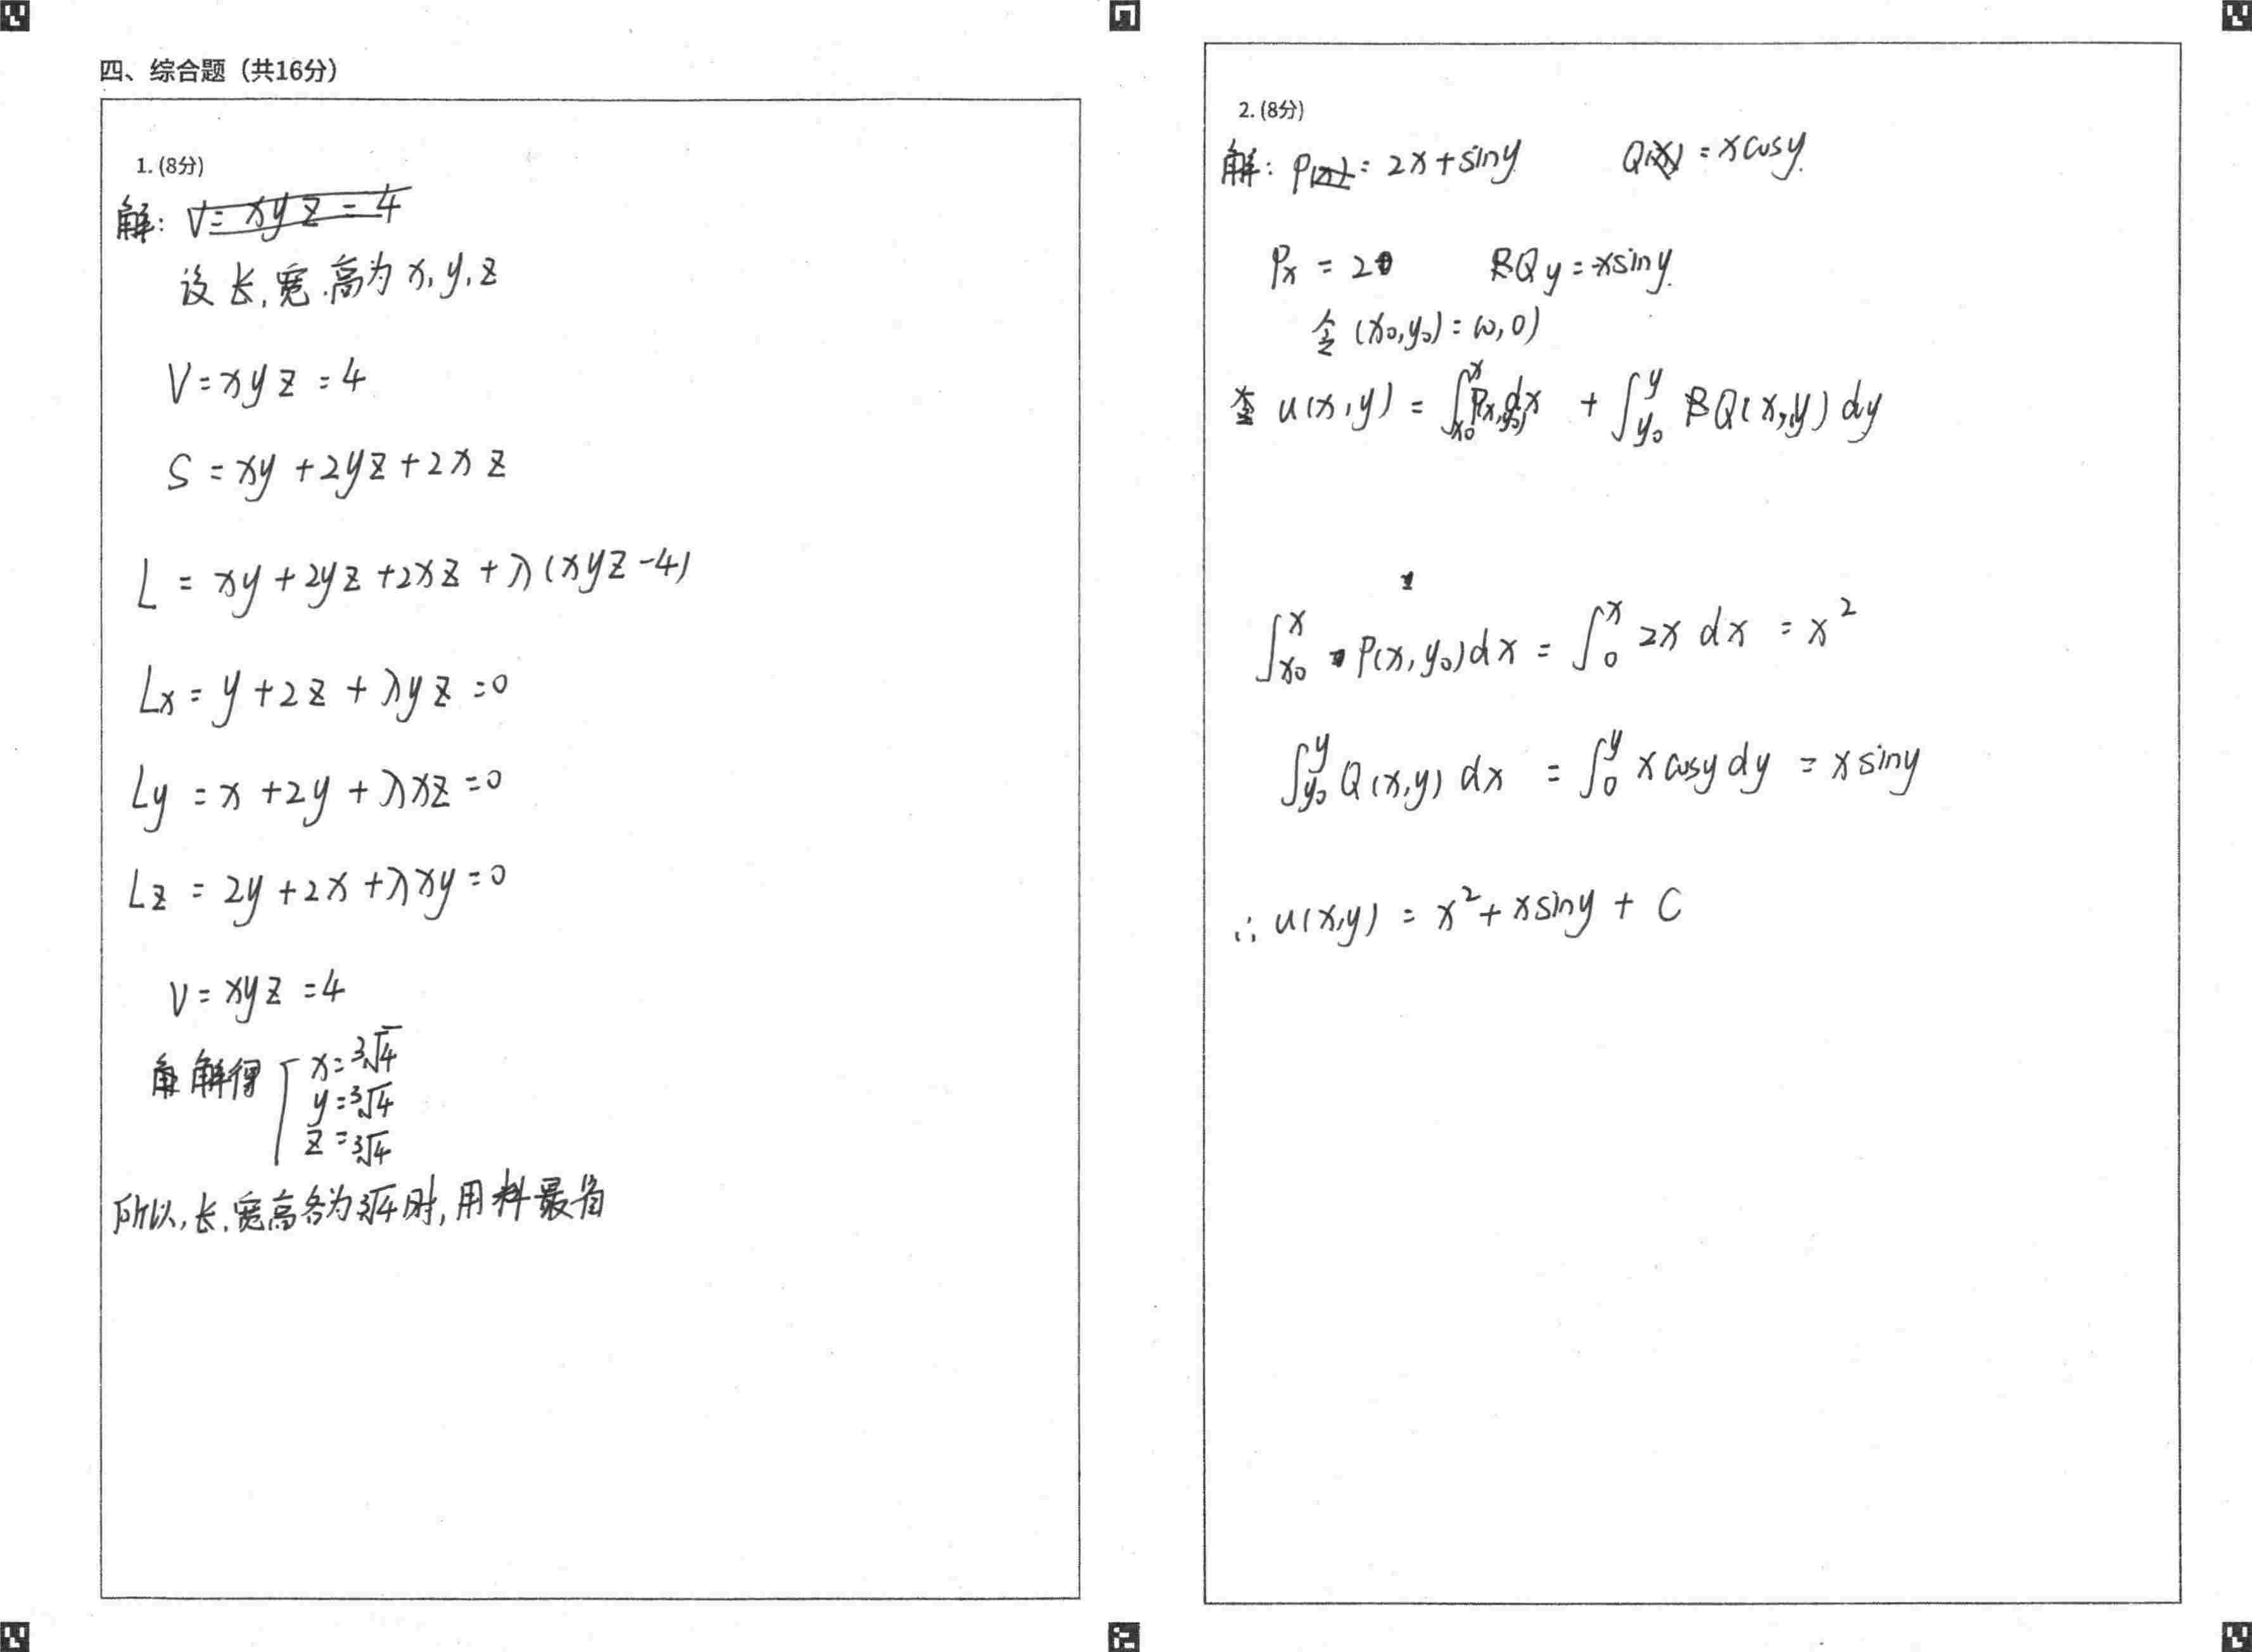 四、综合题（共16分）
1. (8分)
解: V = xyz = 4
设长, 宽, 高为 x, y, z
V = xyz = 4
S = xy + 2yz + 2xz
L = xy + 2yz + 2xz + λ(xyz - 4)
Lx = y + 2z + λyz = 0
Ly = x + 2y + λxz = 0
Lz = 2y + 2x + λxy = 0
V = xyz = 4
解得 { x = ³√4
y = ³√4
z = ³√4
所以, 长, 宽高各为³√4时, 用料最省
2. (8分)
解: P = 2x + siny Q = xcosy.
Px = 2 Qy = -xsiny.
令 (x₀, y₀) = (0, 0)
u(x, y) = ∫_{x₀}^{x} P(x, y₀)dx + ∫_{y₀}^{y} Q(x, y) dy
∫_{x₀}^{x} P(x, y₀)dx = ∫_{0}^{x} 2x dx = x²
∫_{y₀}^{y} Q(x, y) dx = ∫_{0}^{y} xcosy dy = xsiny
∴ u(x, y) = x² + xsiny + C